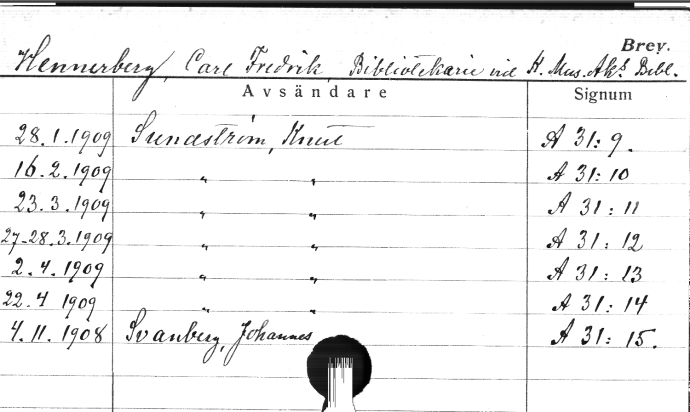 Brev.
Hennerberg, Carl Fredrik, Bibliotekarie vid K. Mus. Aks. Bibl.
Avsändare Signum
28.1.1909 Sundström, Knut A 31: 9.
16.2.1909 " " A 31: 10
23.3.1909 " " A 31: 11
27-28.3.1909 " " A 31: 12
2.4.1909 " " A 31: 13
22.4 1909 " " A 31: 14
4.11.1908 Svanberg, Johannes A 31: 15.